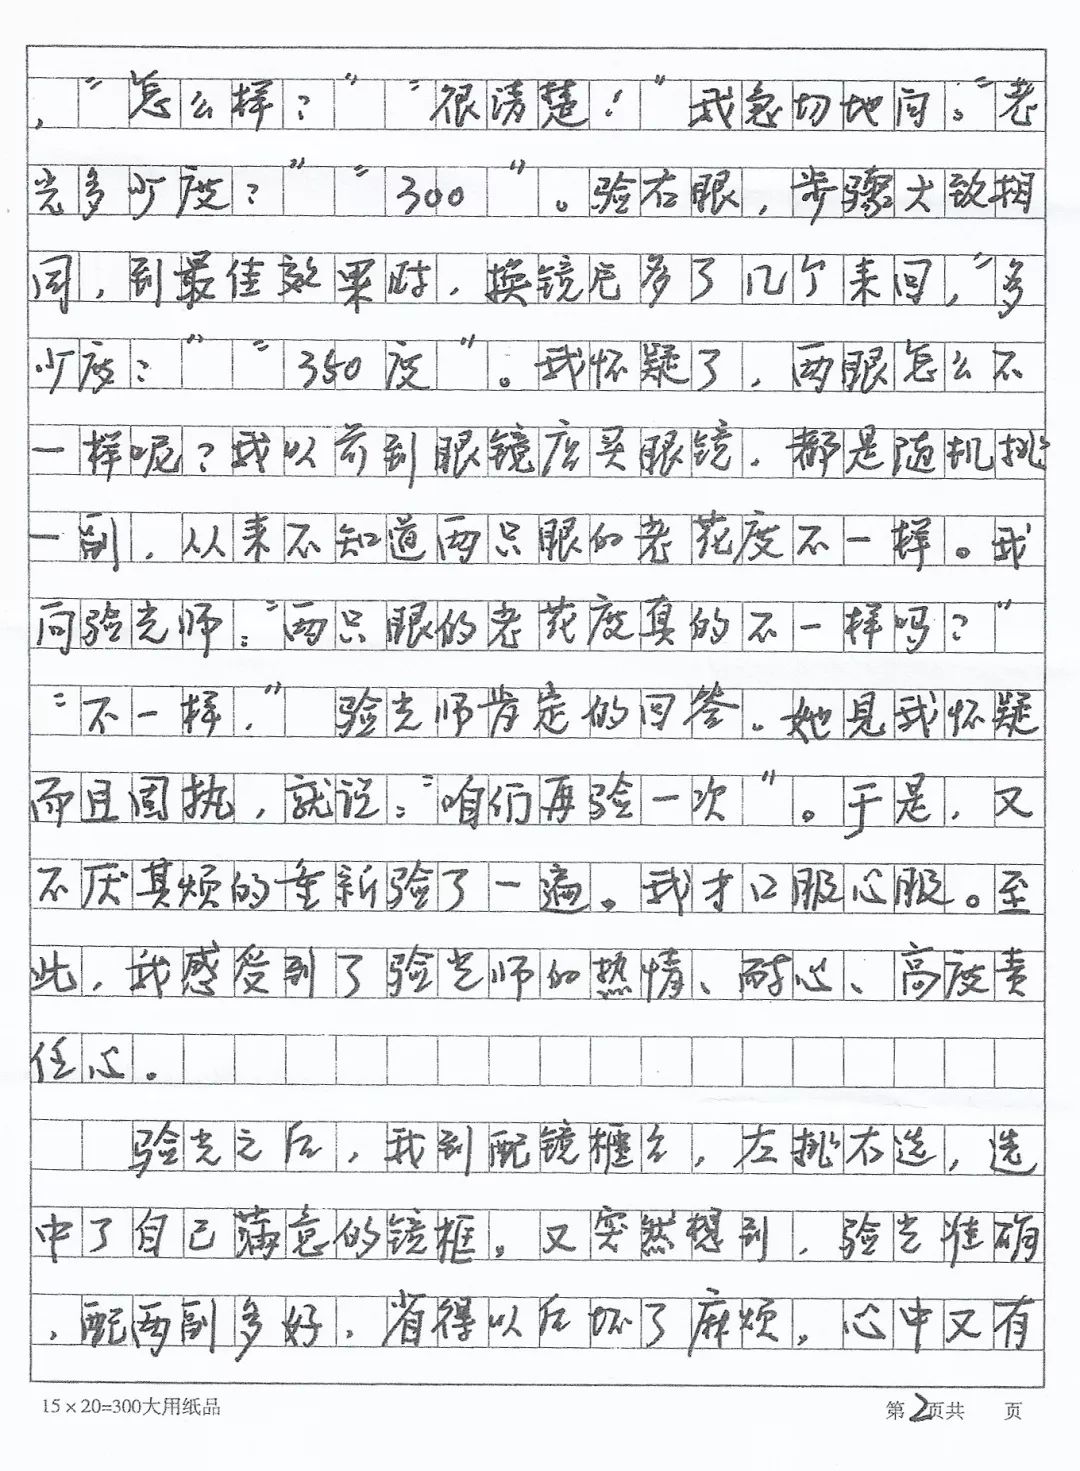 ，“怎么样？”“很清楚！”我急切地问：“老
光多少度？”“300”。验右眼，步骤大致相
同，到最佳效果时，换镜片多了几个来回，“多
少度？”“350度”。我怀疑了，两眼怎么不
一样呢？我以前到眼镜店买眼镜，都是随机挑
一副，从来不知道两只眼的老花度不一样。我
问验光师：“两只眼的老花度真的不一样吗？”
“不一样，”验光师肯定的回答。她见我怀疑
而且固执，就说：“咱们再验一次”。于是，又
不厌其烦的重新验了一遍。我才口服心服。至
此，我感受到了验光师的热情、耐心、高度责
任心。
验光之后，我到配镜柜台，左挑右选，选
中了自己满意的镜框。又突然想到，验光准确
，配两副多好，省得以后坏了麻烦。心中又有
15×20=300大用纸品
第2页共 页